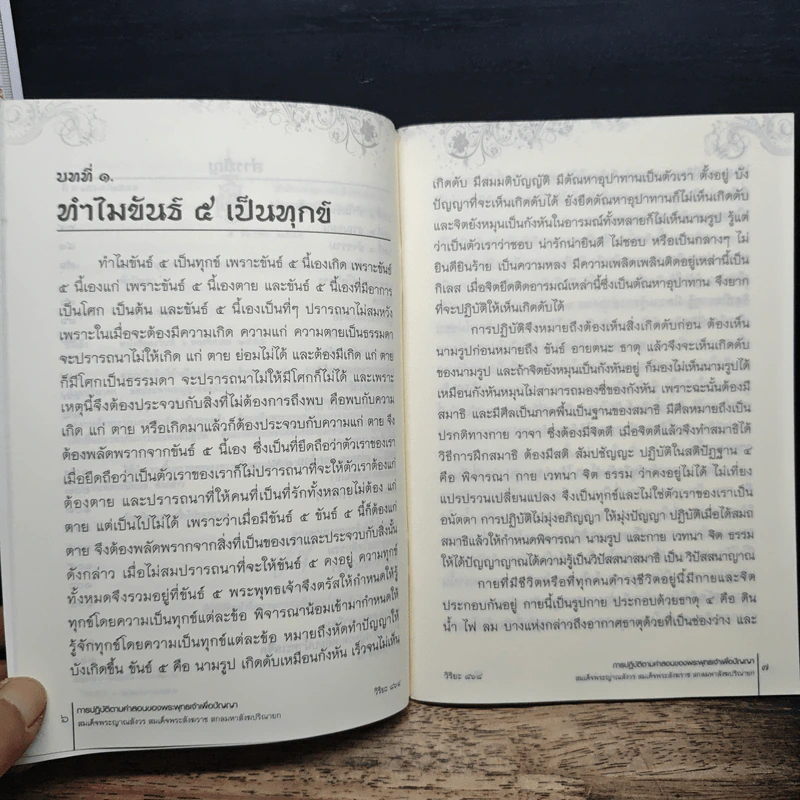 บทที่ ๑.
ทำไมขันธ์ ๕ เป็นทุกข์
ทำไมขันธ์ ๕ เป็นทุกข์ เพราะขันธ์ ๕ นี้เองเกิด เพราะขันธ์
๕ นี้เองแก่ เพราะขันธ์ ๕ นี้เองตาย และขันธ์ ๕ นี้เองที่มีอาการ
เป็นโศก เป็นต้น และขันธ์ ๕ นี้เองเป็นที่ๆ ปรารถนาไม่สมหวัง
เพราะในเมื่อจะต้องมีความเกิด ความแก่ ความตายเป็นธรรมดา
จะปรารถนาไม่ให้เกิด แก่ ตาย ย่อมไม่ได้ และต้องมีเกิด แก่ ตาย
ก็มีโศกเป็นธรรมดา จะปรารถนาไม่ให้มีโศกก็ไม่ได้ และเพราะ
เหตุนี้จึงต้องประจวบกับสิ่งที่ไม่ต้องการถึงพบ คือพบกับความ
เกิด แก่ ตาย หรือเกิดมาแล้วก็ต้องประจวบกับความแก่ ตาย จึง
ต้องพลัดพรากจากขันธ์ ๕ นี้เอง ซึ่งเป็นที่ยึดถือว่าตัวเราของเรา
เมื่อยึดถือว่าเป็นตัวเราของเราก็ไม่ปรารถนาที่จะให้ตัวเราต้องแก่
ต้องตาย และปรารถนาที่ให้คนที่เป็นที่รักทั้งหลายไม่ต้อง แก่
ตาย แต่เป็นไปไม่ได้ เพราะว่าเมื่อมีขันธ์ ๕ ขันธ์ ๕ นี้ก็ต้องแก่
ตาย จึงต้องพลัดพรากจากสิ่งที่เป็นของเราและประจวบกับสิ่งนั้น
ดังกล่าว เมื่อไม่สมปรารถนาที่จะให้ขันธ์ ๕ คงอยู่ ความทุกข์
ทั้งหมดจึงรวมอยู่ที่ขันธ์ ๕ พระพุทธเจ้าจึงตรัสให้กำหนดให้รู้
ทุกข์โดยความเป็นทุกข์แต่ละข้อ พิจารณาน้อมเข้ามากำหนดให้
รู้จักทุกข์โดยความเป็นทุกข์แต่ละข้อ หมายถึงหัดทำปัญญาให้
บังเกิดขึ้น ขันธ์ ๕ คือ นามรูป เกิดดับเหมือนกังหัน เร็วจนไม่เห็น
วิริยะ ๔๖๔
๖
การปฏิบัติตามคำสอนของพระพุทธเจ้าเพื่อปัญญา
สมเด็จพระญาณสังวร สมเด็จพระสังฆราช สกลมหาสังฆปริณายก
เกิดดับ มีสมมติบัญญัติ มีตัณหาอุปาทานเป็นตัวเรา ตั้งอยู่ บัง
ปัญญาที่จะเห็นเกิดดับได้ ยังยึดตัณหาอุปาทานก็ไม่เห็นเกิดดับ
และจิตยังหมุนเป็นกังหันในอารมณ์ทั้งหลายก็ไม่เห็นนามรูป รู้แต่
ว่าเป็นตัวเราว่าชอบ น่ารักน่ายินดี ไม่ชอบ หรือเป็นกลางๆ ไม่
ยินดียินร้าย เป็นความหลง มีความเพลิดเพลินติดอยู่เหล่านี้เป็น
กิเลส เมื่อจิตยึดติดอารมณ์เหล่านี้ซึ่งเป็นตัณหาอุปาทาน จึงยาก
ที่จะปฏิบัติให้เห็นเกิดดับได้
การปฏิบัติจึงหมายถึงต้องเห็นสิ่งเกิดดับก่อน ต้องเห็น
นามรูปก่อนหมายถึง ขันธ์ อายตนะ ธาตุ แล้วจึงจะเห็นเกิดดับ
ของนามรูป และถ้าจิตยังหมุนเป็นกังหันอยู่ ก็มองไม่เห็นนามรูปได้
เหมือนกังหันหมุนไม่สามารถมองซี่ของกังหัน เพราะฉะนั้นต้องมี
สมาธิ และมีศีลเป็นภาคพื้นเป็นฐานของสมาธิ มีศีลหมายถึงเป็น
ปรกติทางกาย วาจา ซึ่งต้องมีจิตดี เมื่อจิตดีแล้วจึงทำสมาธิได้
วิธีการฝึกสมาธิ ต้องมีสติ สัมปชัญญะ ปฏิบัติในสติปัฏฐาน ๔
คือ พิจารณา กาย เวทนา จิต ธรรม ว่าคงอยู่ไม่ได้ ไม่เที่ยง
แปรปรวนเปลี่ยนแปลง จึงเป็นทุกข์และไม่ใช่ตัวเราของเราเป็น
อนัตตา การปฏิบัติไม่มุ่งอภิญญา ให้มุ่งปัญญา ปฏิบัติเมื่อได้สมถ
สมาธิแล้วให้กำหนดพิจารณา นามรูป และกาย เวทนา จิต ธรรม
ให้ได้ปัญญาญาณได้ความรู้เป็นวิปัสสนาสมาธิ เป็น วิปัสสนาญาณ
กายที่มีชีวิตหรือที่ทุกคนดำรงชีวิตอยู่นี้มีกายและจิต
ประกอบกันอยู่ กายนี้เป็นรูปกาย ประกอบด้วยธาตุ ๔ คือ ดิน
น้ำ ไฟ ลม บางแห่งกล่าวถึงอากาศธาตุด้วยที่เป็นช่องว่าง และ
วิริยะ ๔๖๔
การปฏิบัติตามคำสอนของพระพุทธเจ้าเพื่อปัญญา
สมเด็จพระญาณสังวร สมเด็จพระสังฆราช สกลมหาสังฆปริณายก
๗